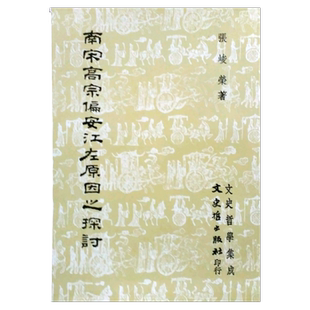 張峻榮著
南宋高宗偏安江左原因之探討
文史哲學集成
文史哲出版社印行